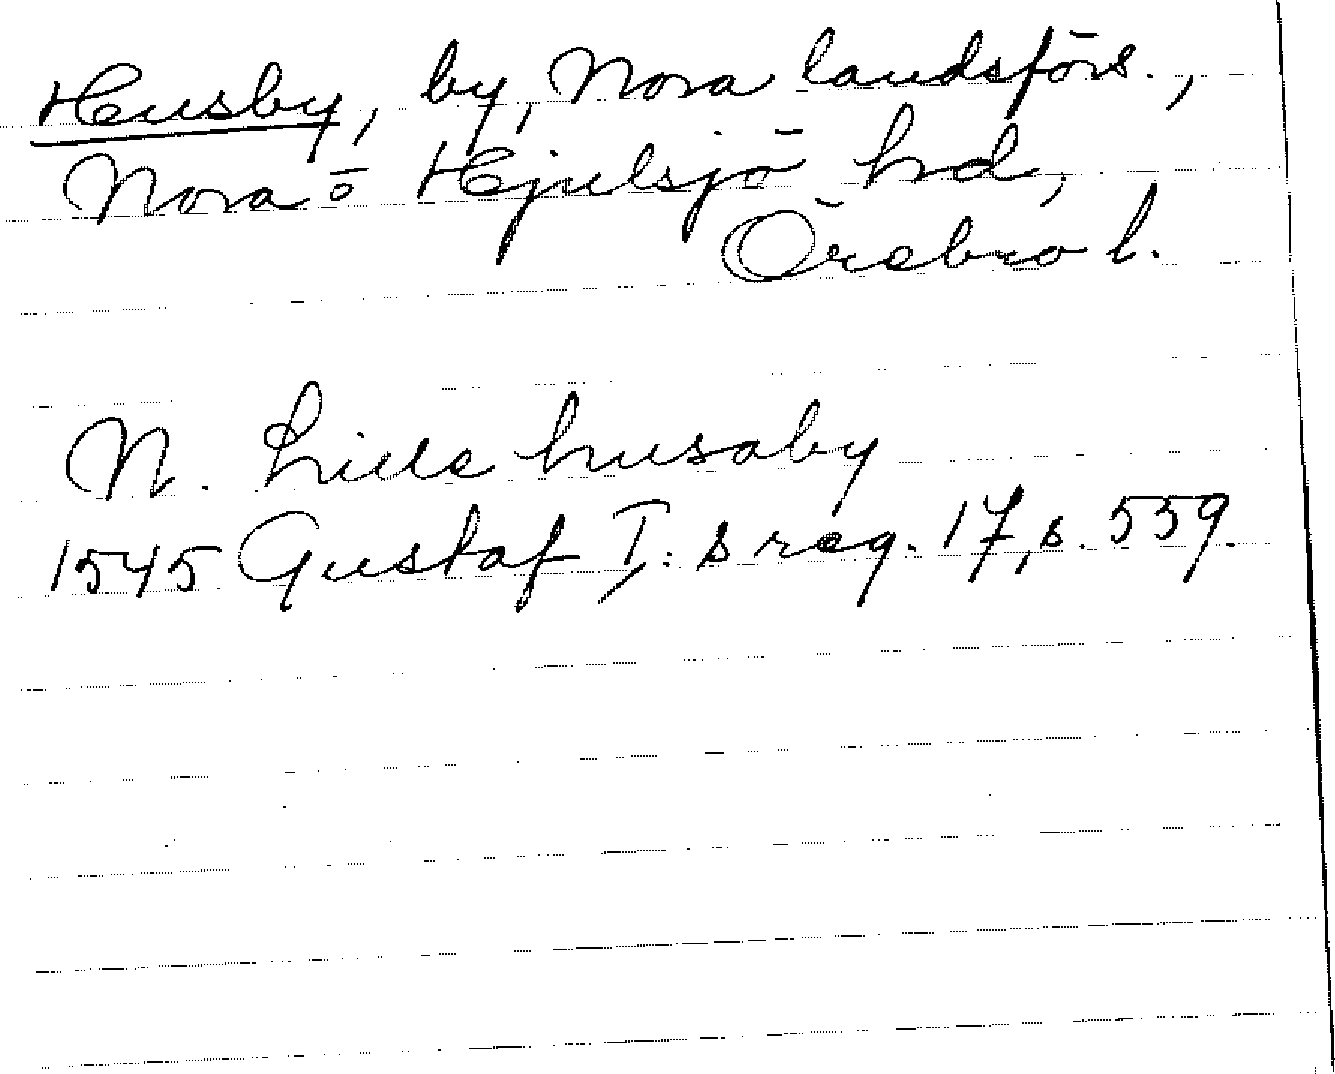 Husby, by, Nora landsförs.,
Nora o Hjulsjö hd,
Örebro l.
N. Lille husaby
1545 Gustaf I:s reg. 17, s. 559.